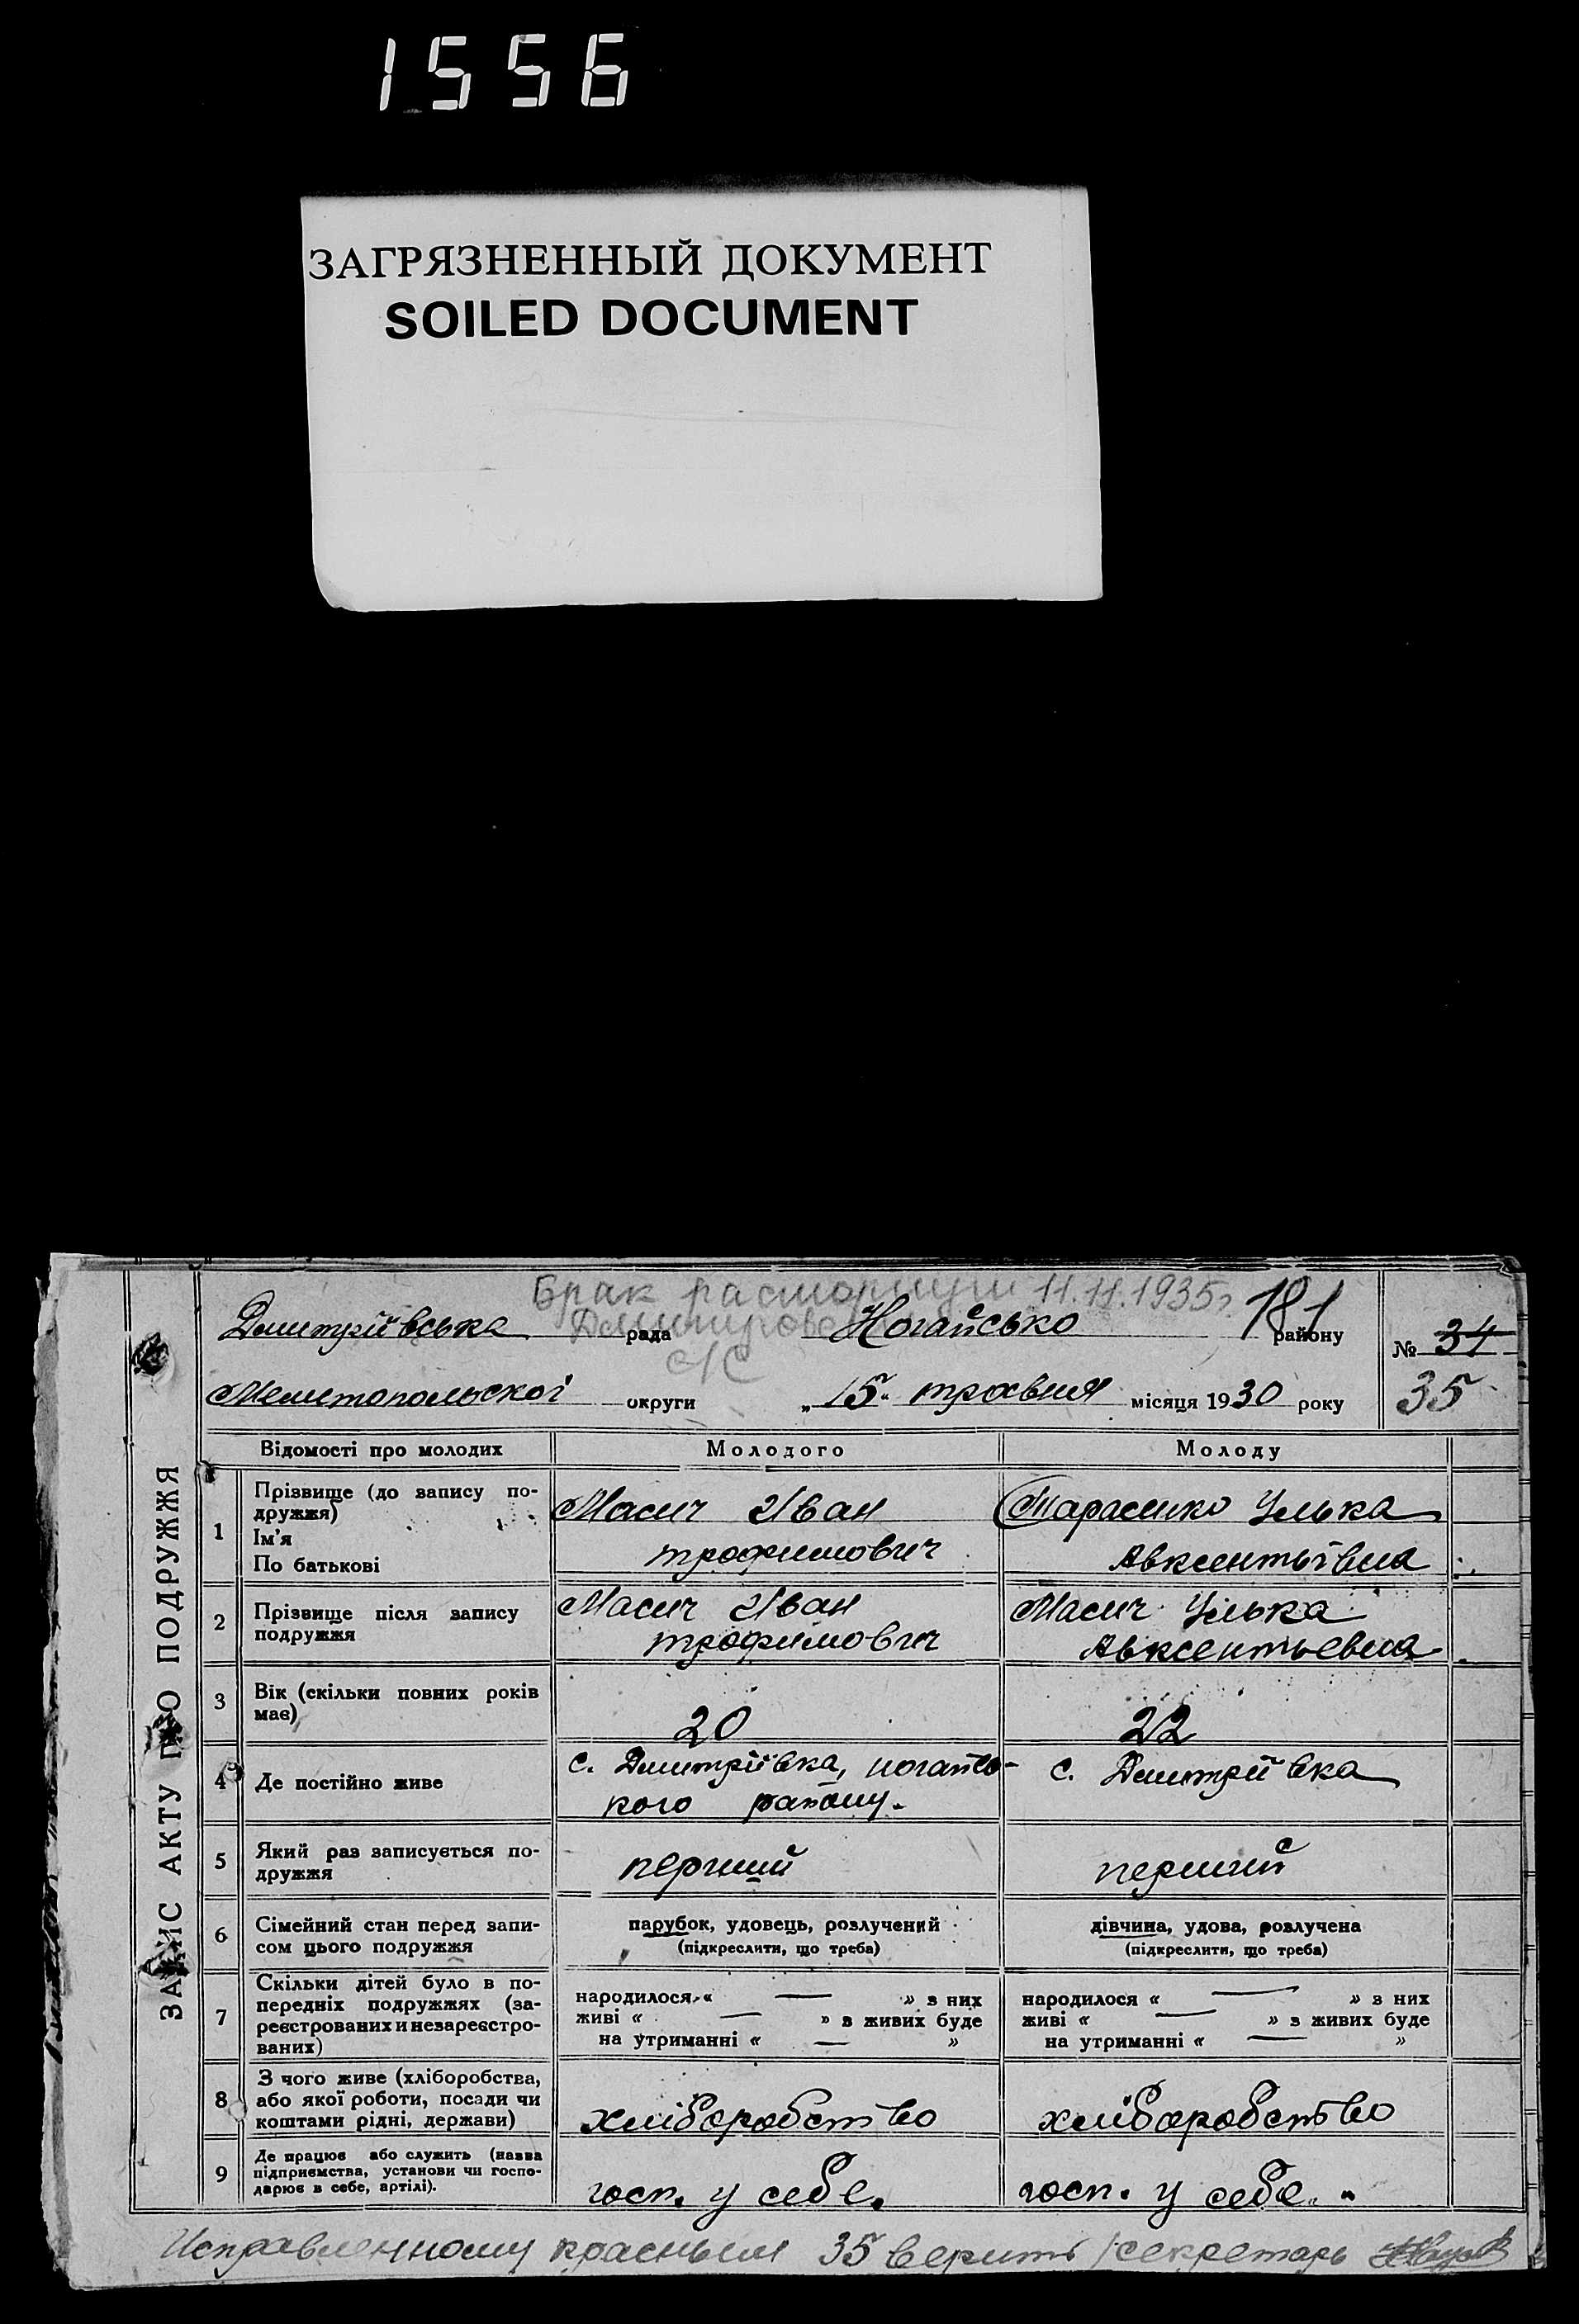 1556
ЗАГРЯЗНЕННЫЙ ДОКУМЕНТ
SOILED DOCUMENT
ЗАПИС АКТУ ПРО ПОДРУЖЖЯ
Брак расторгнут 11.11.1935г
181
Дмитріївська рада Ногайсько району
№ 34
с/с
Мелитопольскої округи „15" травня місяця 1930 року
35
Відомості про молодих Молодого Молоду
1 Прізвище (до запису по-
дружжя)
Ім'я
По батькові
Масич Иван
трофимович
Тарасенко Улька
Авксентьівна
2 Прізвище після запису
подружжя
Масич Иван
трофимович
Масич Улька
Авксентьевна
3 Вік (скільки повних років
має)
20
22
4 Де постійно живе
с. Дмитріївка, ногайсь-
кого району.
с. Дмитріївка
5 Який раз записується по-
дружжя
перший
перший
6 Сімейний стан перед запи-
сом цього подружжя
парубок, удовець, розлучений
(підкреслити, що треба)
дівчина, удова, розлучена
(підкреслити, що треба)
7 Скільки дітей було в по-
передніх подружжях (за-
реєстрованих и незареєстро-
ваних)
народилося « — » з них
живі « — » з живих буде
на утриманні « — »
народилося « — » з них
живі « — » з живих буде
на утриманні « — »
8 З чого живе (хліборобства,
або якої роботи, посади чи
коштами рідні, держави)
хліборобство
хліборобство
9 Де працює або служить (назва
підприємства, установи чи госпо-
дарює в себе, артілі).
госп. у себе.
госп. у себе.
Исправленному красным 35 верить секретарь